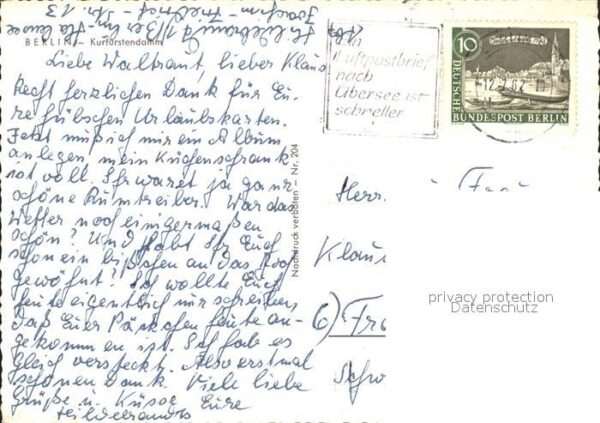 BERLIN – Kurfürstendamm
Liebe Waltraut, lieber Klaus
Recht herzlichen Dank für Eu-
re hübschen Urlaubskarten.
Jetzt muß ich mir ein Album
anlegen, mein Küchenschrank
ist voll. Ihr waret ja ganz
schöne Rumtreiber. War das
Wetter noch einigermaßen
schön? Und habt Ihr Euch
schon ein bißchen an das
gewöhnt? Ich wollte Euch
heute eigentlich nur schreiben,
daß Euer Päckchen heute an-
gekommen ist. Ich hab es
gleich versteckt. Also erstmal
schönen Dank. Viele liebe
Grüße u. Küsse Eure
Hildebrandts
Nachdruck verboten – Nr. 204
Ein
Luftpostbrief
nach
Übersee ist
schneller
10
DEUTSCHE
BUNDESPOST BERLIN
Herr. u Frau
Klaus
6) Fra
Schw
privacy protection
Datenschutz